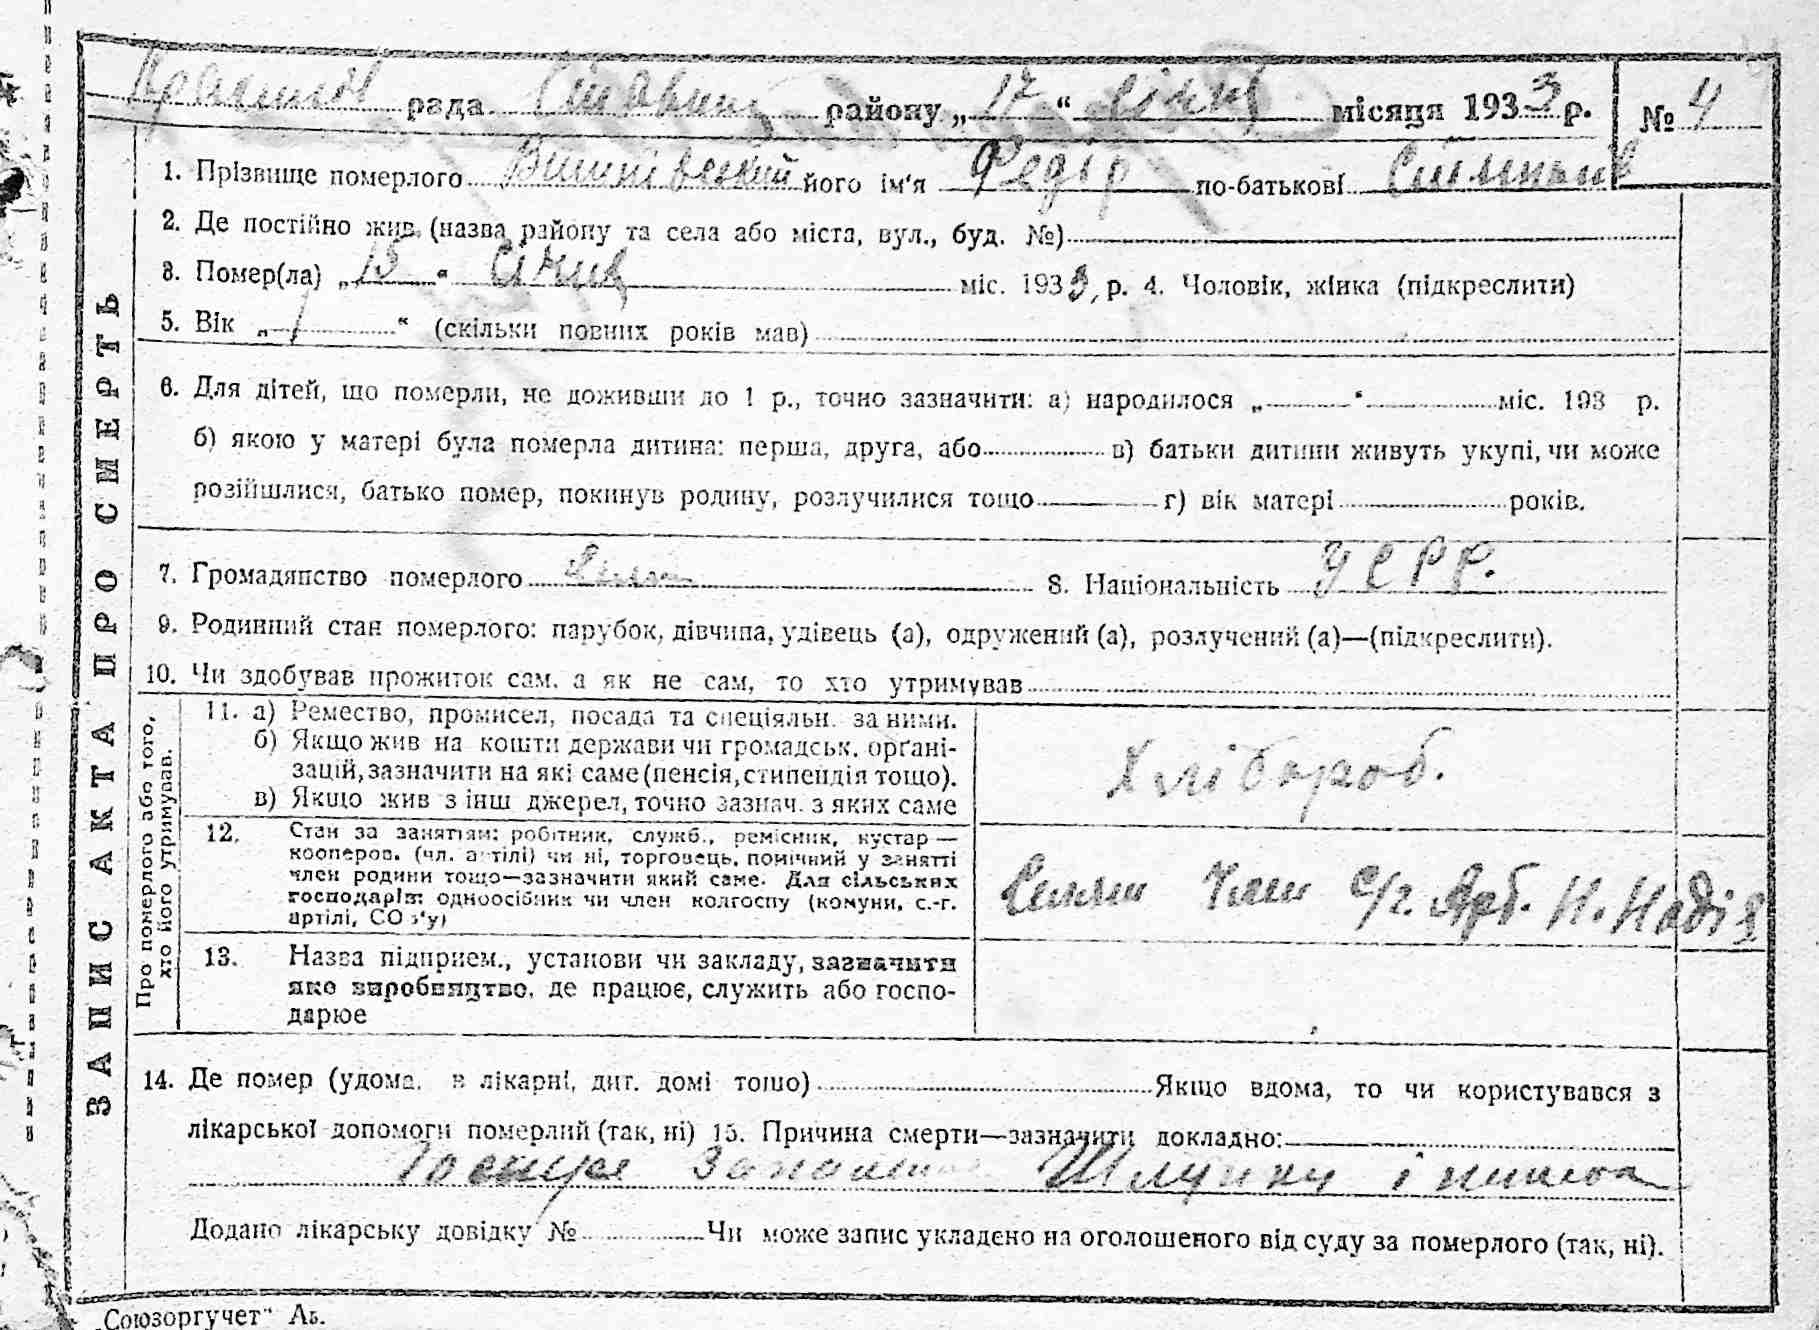 рада району „17“ січня місяця 1933 р. № 4
1. Прізвище померлого його ім'я Федір по-батькові
2. Де постійно жив (назва району та села або міста, вул., буд. №)
3. Помер(ла) „15“ Січня міс. 1933 р. 4. Чоловік, жінка (підкреслити)
5. Вік „1“ (скільки повних років мав)
6. Для дітей, що померли, не доживши до 1 р., точно зазначити: а) народилося „ “ міс. 193 р.
б) якою у матері була померла дитина: перша, друга, або в) батьки дитини живуть укупі, чи може
розійшлися, батько помер, покинув родину, розлучилися тощо г) вік матері років.
7. Громадянство померлого 8. Національність УСРР.
9. Родинний стан померлого: парубок, дівчина, удівець (а), одружений (а), розлучений (а)—(підкреслити).
10. Чи здобував прожиток сам, а як не сам, то хто утримував
ЗАПИС АКТА ПРО СМЕРТЬ
Про померлого або того,
хто його утримував.
11. а) Ремество, промисел, посада та спеціяльн. за ними.
б) Якщо жив на кошти держави чи громадськ. орґані-
зацій, зазначити на які саме (пенсія, стипендія тощо).
в) Якщо жив з інш джерел, точно зазнач. з яких саме
Хлібороб.
12. Стан за заняттям: робітник, служб., ремісник, кустар—
кооперов. (чл. артілі) чи ні, торговець, помічний у занятті
член родини тощо—зазначити який саме. Для сільських
господарів: одноосібник чи член колгоспу (комуни, с.-г.
артілі, СОЗ'у)
Член с/г. Арб. Н. Надія
13. Назва підприєм., установи чи закладу, зазначити
яке виробництво, де працює, служить або госпо-
дарює
14. Де помер (удома, в лікарні, дит. домі тощо) Якщо вдома, то чи користувався з
лікарської допомоги померлий (так, ні) 15. Причина смерти—зазначити докладно:
Шлунку і кишок
Додано лікарську довідку № Чи може запис укладено на оголошеного від суду за померлого (так, ні).
„Союзоргучет“